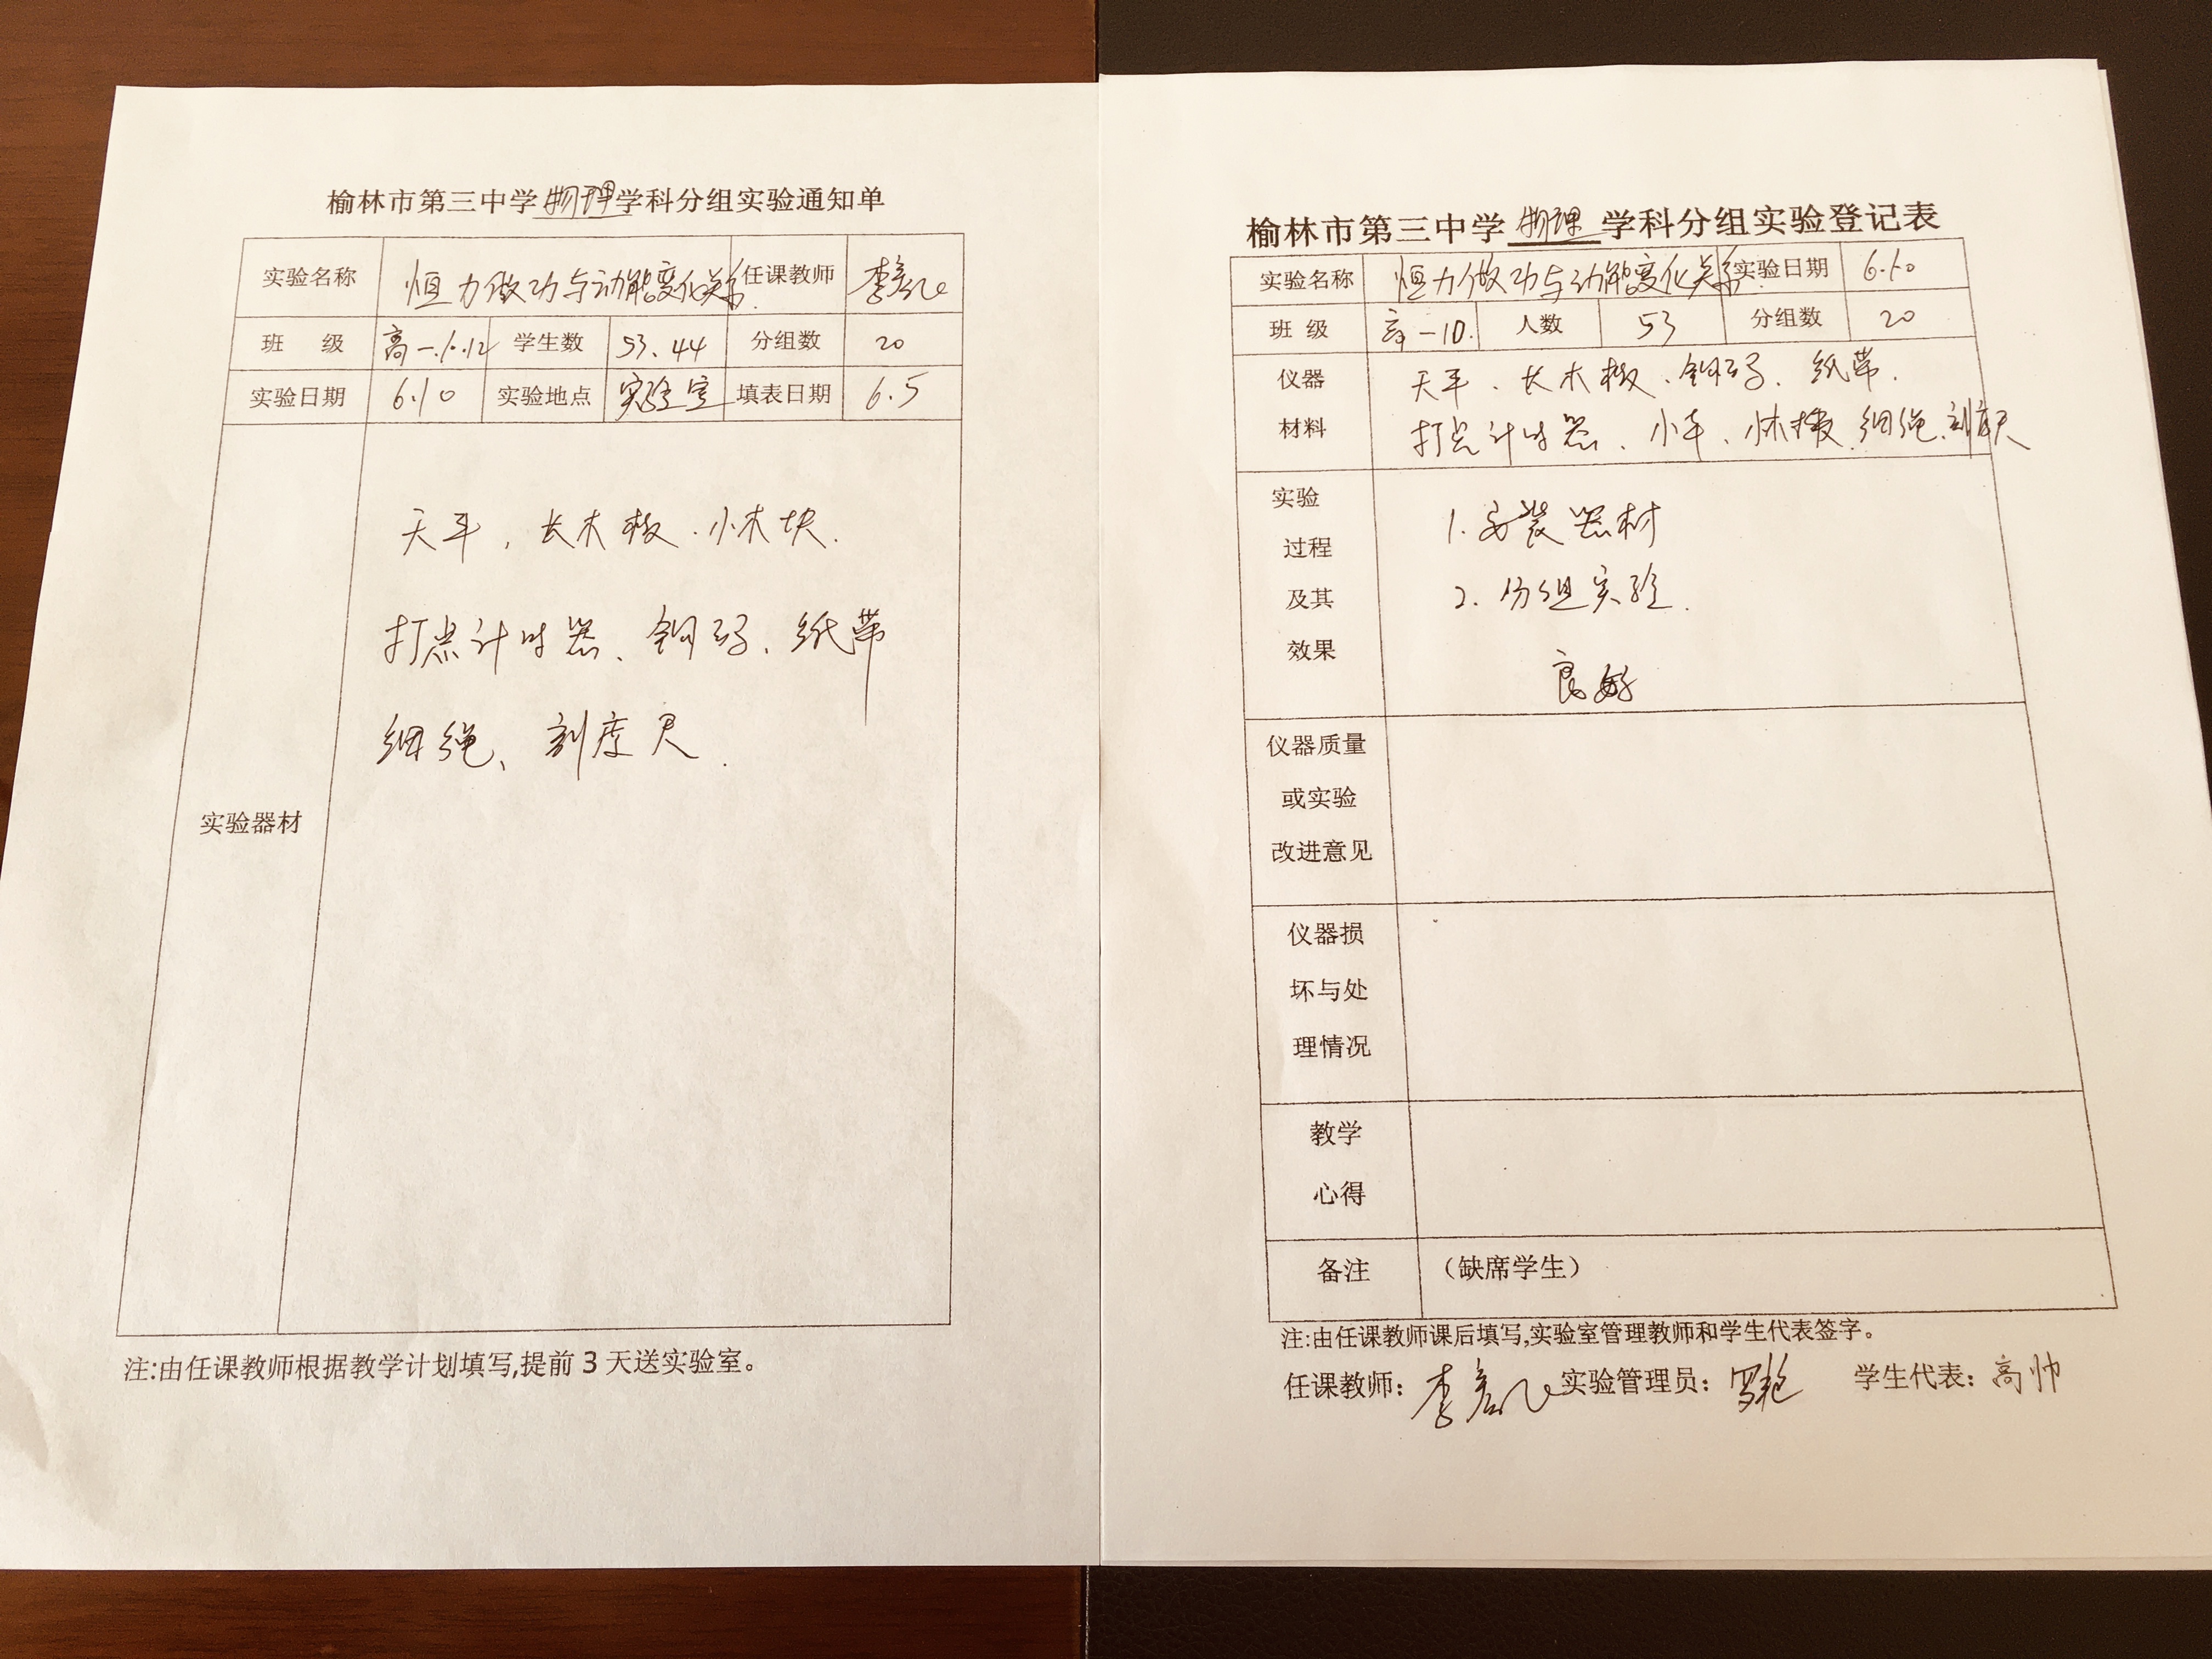 榆林市第三中学物理学科分组实验通知单
实验名称 恒力做功与动能变化关系 任课教师 李彦
班 级 高一.10.12 学生数 53.44 分组数 20
实验日期 6.10 实验地点 实验室 填表日期 6.5
天平,长木板.小木块.
打点计时器、钩码、纸带
细绳、刻度尺.
实验器材
注:由任课教师根据教学计划填写,提前3天送实验室。
榆林市第三中学物理学科分组实验登记表
实验名称 恒力做功与动能变化关系. 实验日期 6.10
班 级 高一10. 人数 53 分组数 20
仪器 天平、长木板、钩码、纸带.
材料 打点计时器、小车、小木板.细绳.刻度尺
实验 1.安装器材
过程
及其 2.分组实验.
效果 良好
仪器质量
或实验
改进意见
仪器损
坏与处
理情况
教学
心得
备注 (缺席学生)
注:由任课教师课后填写,实验室管理教师和学生代表签字。
任课教师: 李 实验管理员: 罗艳 学生代表: 高帅